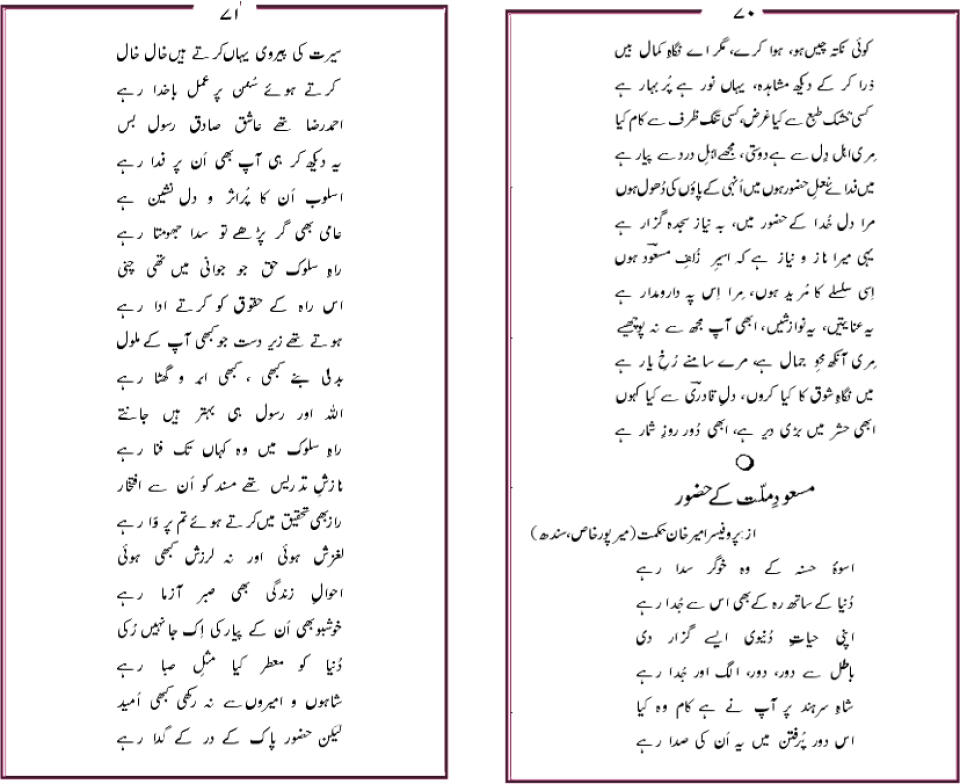 ۷۰
کوئی نکتہ چیں ہو، ہوا کرے، مگر اے نگاہِ کمال بیں
ذرا کر کے دیکھ مشاہدہ، یہاں نور ہے پُر بہار ہے
کسی خشک طبع سے کیا غرض، کسی تنگ ظرف سے کام کیا
مِری اہل دِل سے ہے دوستی، مجھے اہلِ درد سے پیار ہے
میں فدائے نعلِ حضور ہوں میں اُنہی کے پاؤں کی دُھول ہوں
مرا دل خُدا کے حضور میں، بہ نیاز سجدہ گزار ہے
یہی میرا ناز و نیاز ہے کہ اسیرِ زُلفِ مسعودؔ ہوں
اِسی سلسلے کا مُرید ہوں، مِرا اِس پہ دارومدار ہے
یہ عنایتیں، یہ نوازشیں، ابھی آپ مجھ سے نہ پوچھیے
مِری آنکھ محوِ جمال ہے، مرے سامنے رُخِ یار ہے
میں نگاہِ شوق کا کیا کروں، دلِ قادریؔ سے کیا کہوں
ابھی حشر میں بڑی دیر ہے، ابھی دُور روزِ شمار ہے
مسعودِ ملّت کے حضور
از: پروفیسر امیر خان حکمت (میرپورخاص، سندھ)
اسوۂ حسنہ کے وہ خوگر سدا رہے
دُنیا کے ساتھ رہ کے بھی اس سے جُدا رہے
اپنی حیاتِ دُنیوی ایسے گزار دی
باطل سے دور، دور، الگ اور جُدا رہے
شاہِ سرہند پر آپ نے ہے کام وہ کیا
اس دور پُرفتن میں یہ اُن کی صدا رہے
۷۱
سیرت کی پیروی یہاں کرتے ہیں خال خال
کرتے ہوئے سُنن پر عمل باخدا رہے
احمدرضا تھے عاشق صادق رسول بس
یہ دیکھ کر ہی آپ بھی اُن پر فدا رہے
اسلوب اُن کا پُراثر و دل نشین ہے
عامی بھی گر پڑھے تو سدا جھومتا رہے
راہِ سلوک حق جو جوانی میں تھی چنی
اس راہ کے حقوق کو کرتے ادا رہے
ہوتے تھے زیر دست جو کبھی آپ کے ملول
بدلی بنے کبھی ، کبھی ابر و گھٹا رہے
اللہ اور رسول ہی بہتر ہیں جانتے
راہِ سلوک میں وہ کہاں تک فنا رہے
نازشِ تدریس تھے مسند کو اُن سے افتخار
راز بھی تحقیق میں کرتے ہوئے تم پر وَا رہے
لغزش ہوئی اور نہ لرزش کبھی ہوئی
احوالِ زندگی بھی صبر آزما رہے
خوشبو بھی اُن کے پیار کی اِک جا نہیں رُکی
دُنیا کو معطر کیا مثلِ صبا رہے
شاہوں و امیروں سے نہ رکھی کبھی اُمید
لیکن حضور پاک کے در کے گدا رہے